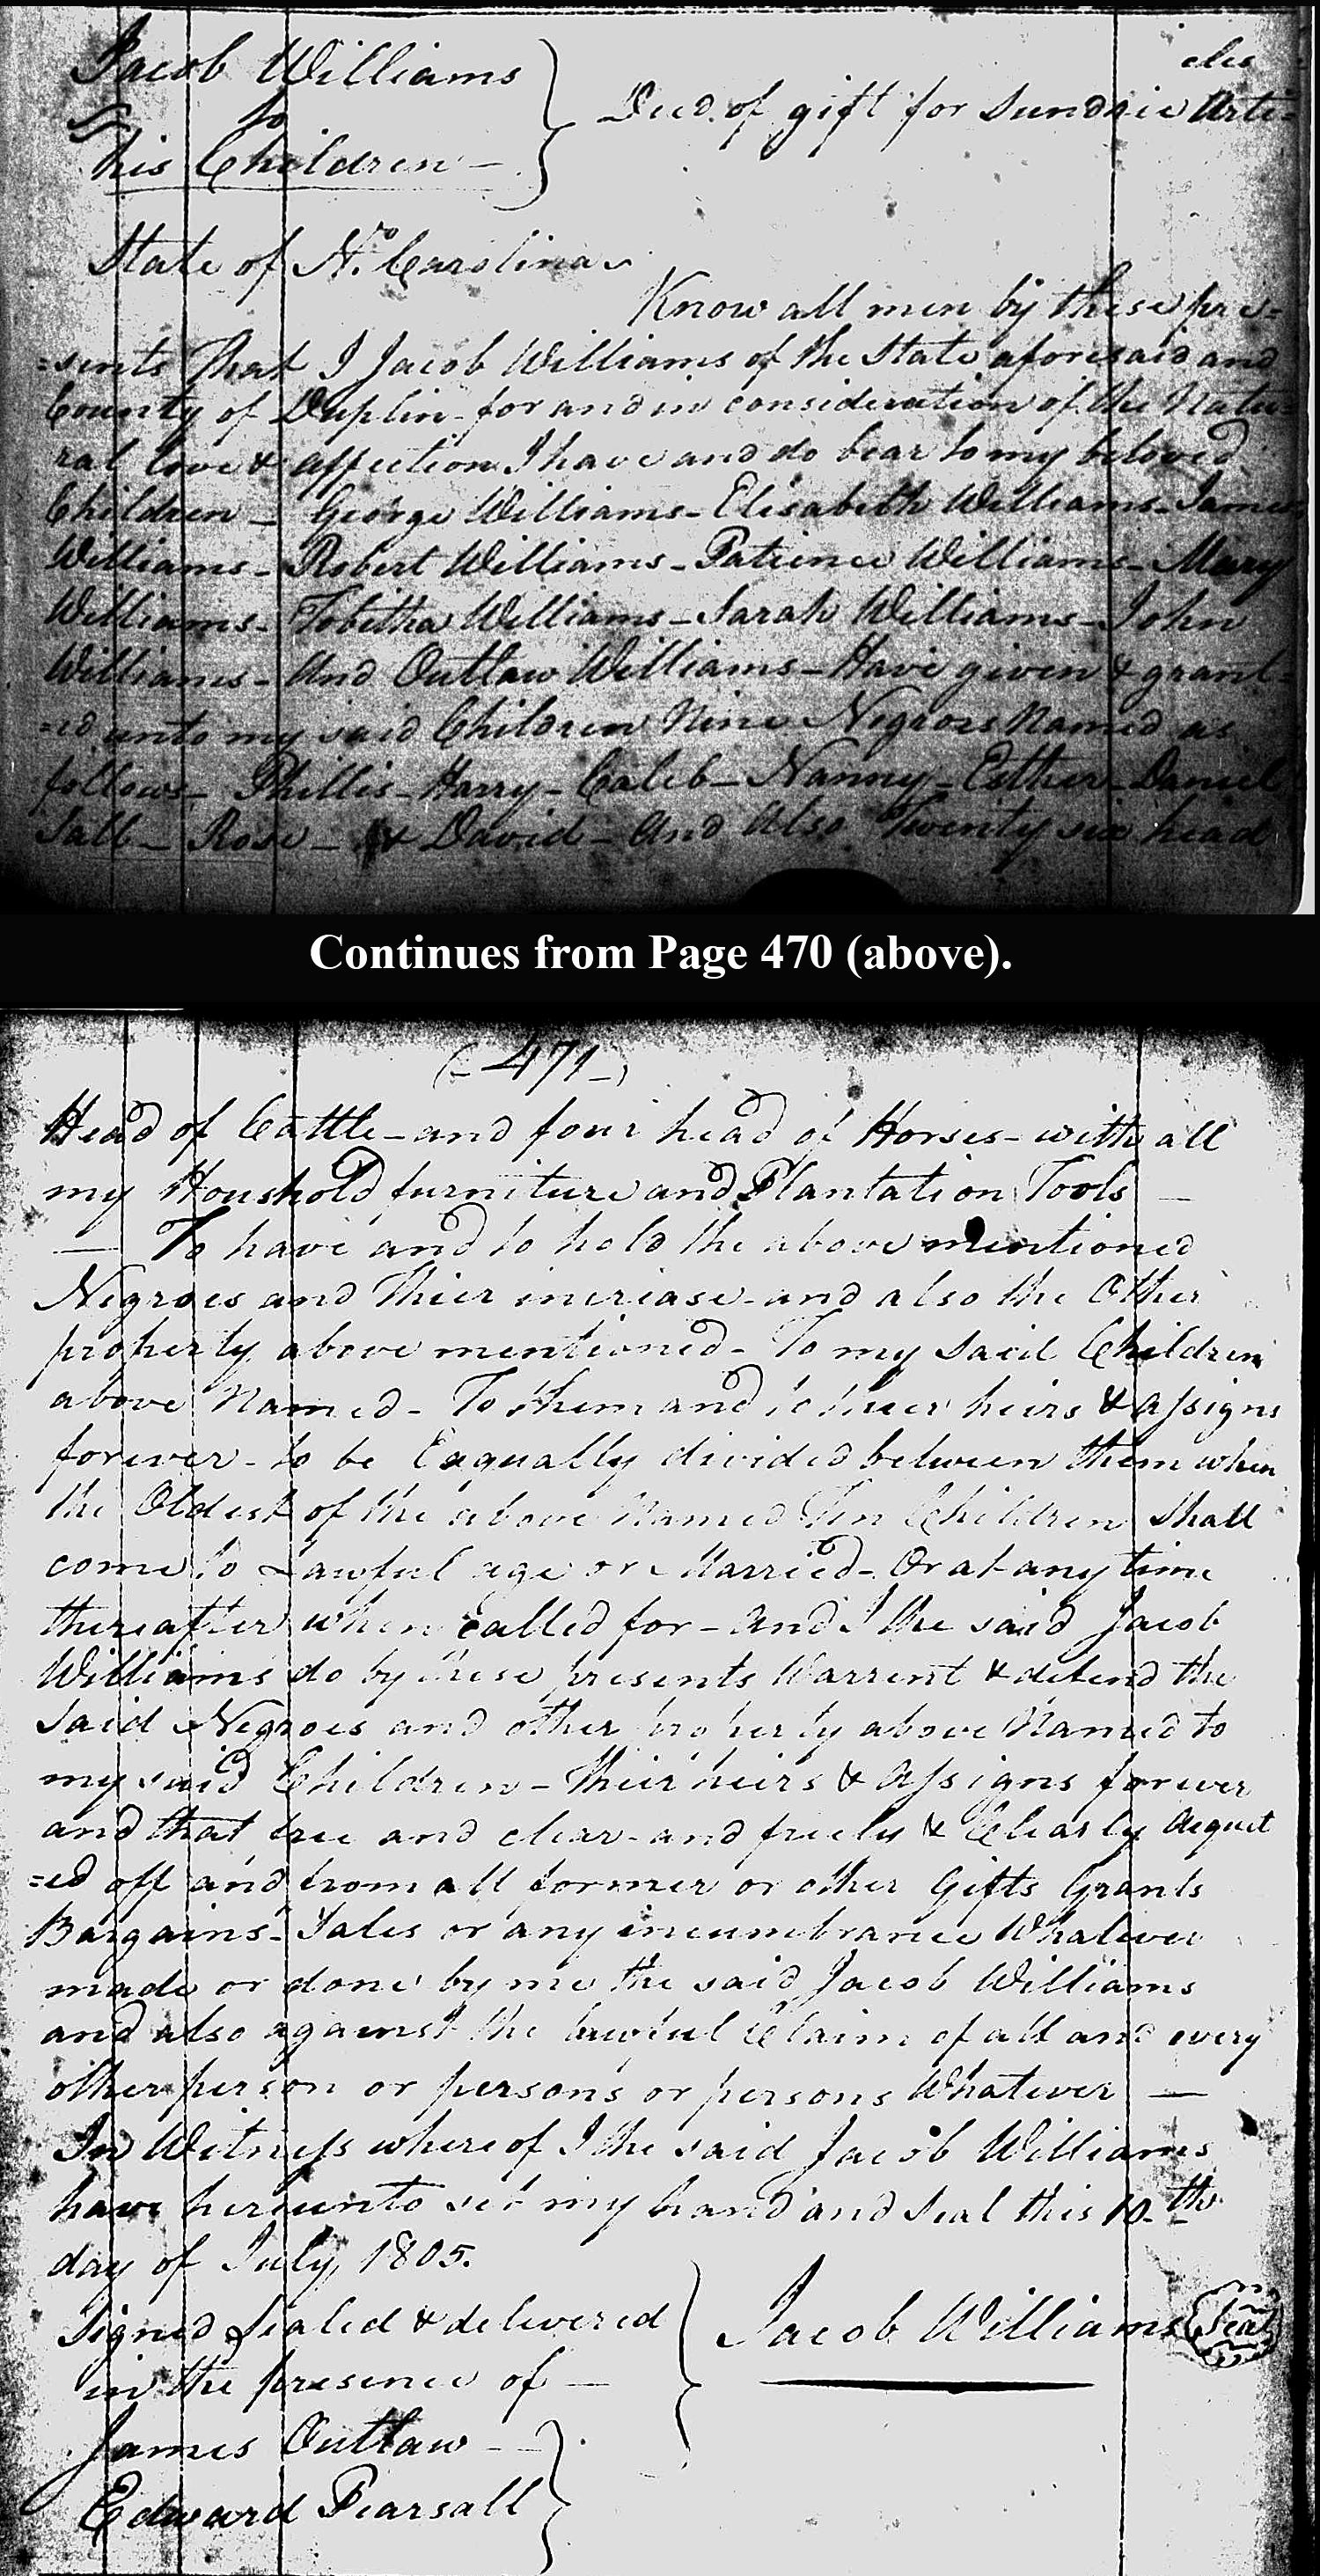 Jacob Williams
to
his Children –
Deed. of gift for Sundrie Arti=
cles
State of No. Carolina
Know all men by these pre=
=sents that I Jacob Williams of the State aforesaid and
County of Duplin - for and in consideration of the Natu=
ral love & affection I have and do bear to my beloved
Children – George Williams – Elisabeth Williams – James
Williams – Robert Williams – Patience Williams – Mary
Williams – Tobitha Williams – Sarah Williams – John
Williams – And Outlaw Williams – Have given & grant=
=ed unto my said Children Nine Negroes Named as
follows – Phillis – Harry – Caleb – Nanny – Esther – Daniel
Sall – Rose – & David – And also Twenty six head
Continues from Page 470 (above).
(– 471 –)
Head of Cattle – and four head of Horses – with all
my Houshold furniture and Plantation Tools –
— To have and to hold the above mentioned
Negroes and thier increase – and also the Other
property above mentioned – To my said Children
above Named – To them and to thier heirs & assigns
forever – to be Eaqually divided between them when
the Oldest of the above Named Ten Children shall
come to Lawful age or Married – Or at any time
thereafter when called for – And I the said Jacob
Williams do by these presents Warrent & defend the
said Negroes and other property above Named to
my said Children – their heirs & assigns forever
and that free and clear – and freely & Clearly Acquit
=ed off and from all former or other Gifts Grants
Bargains – Sales or any incumbrance Whatever
made or done by me the said Jacob Williams
and also against the lawful Claim of all and every
other person or persons or persons Whatever —
In Witness whereof I the said Jacob Williams
have hereunto set my hand and seal this 10th
day of July, 1805.
Signed Sealed & delivered
in the presence of —
Jacob Williams (Seal)
James Outlaw –
Edward Pearsall